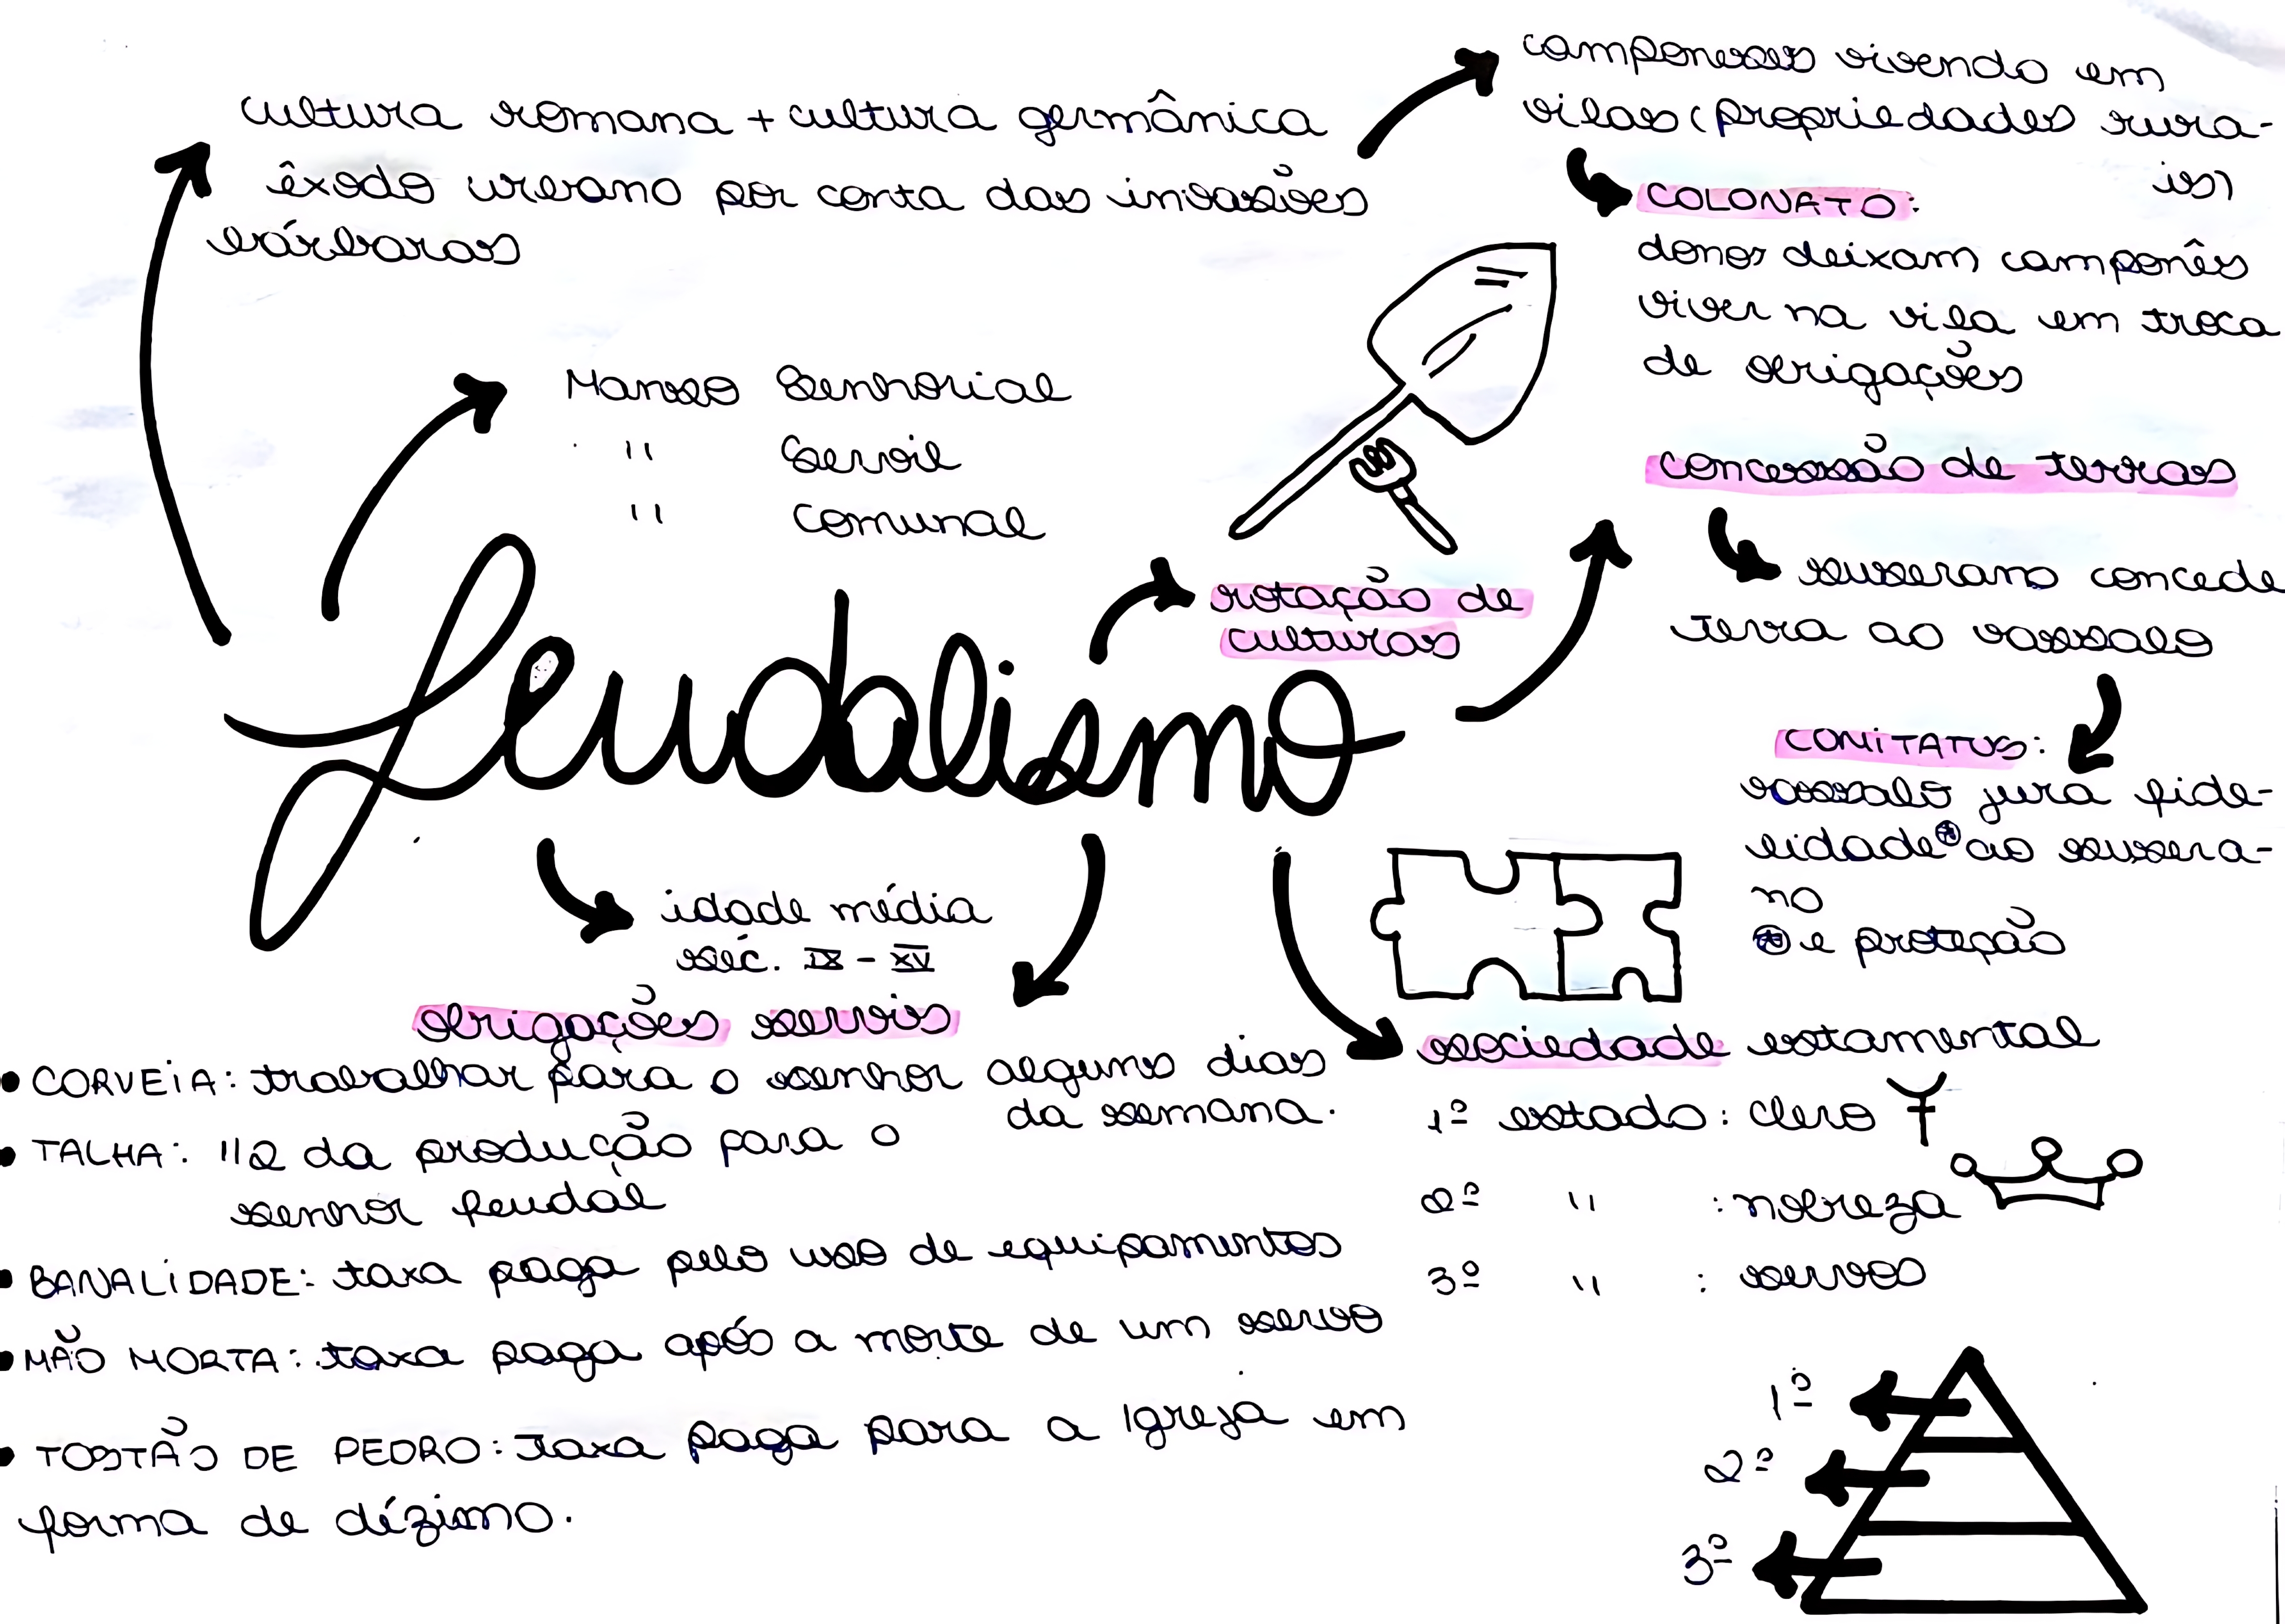 cultura romana + cultura germânica
êxodo urbano por conta das invasões
bárbaras
camponeses vivendo em
vilas (propriedades rura-
is)
COLONATO:
donos deixam camponês
viver na vila em troca
de obrigações
Manso Senhorial
" Servil
" Comunal
concessão de terras
suserano concede
terra ao vassalo
COMITATUS:
vassalo jura fide-
lidade* ao susera-
no
* e proteção
rotação de
culturas
feudalismo
idade média
séc. IX - XV
obrigações servis
• CORVEIA: trabalhar para o senhor alguns dias
da semana.
• TALHA: 1/2 da produção para o
senhor feudal
• BANALIDADE: taxa paga pelo uso de equipamentos
• MÃO MORTA: taxa paga após a morte de um servo
• TOSTÃO DE PEDRO: taxa paga para a Igreja em
forma de dízimo.
sociedade estamental
1º estado: clero
2º " : nobreza
3º " : servos
1º
2º
3º